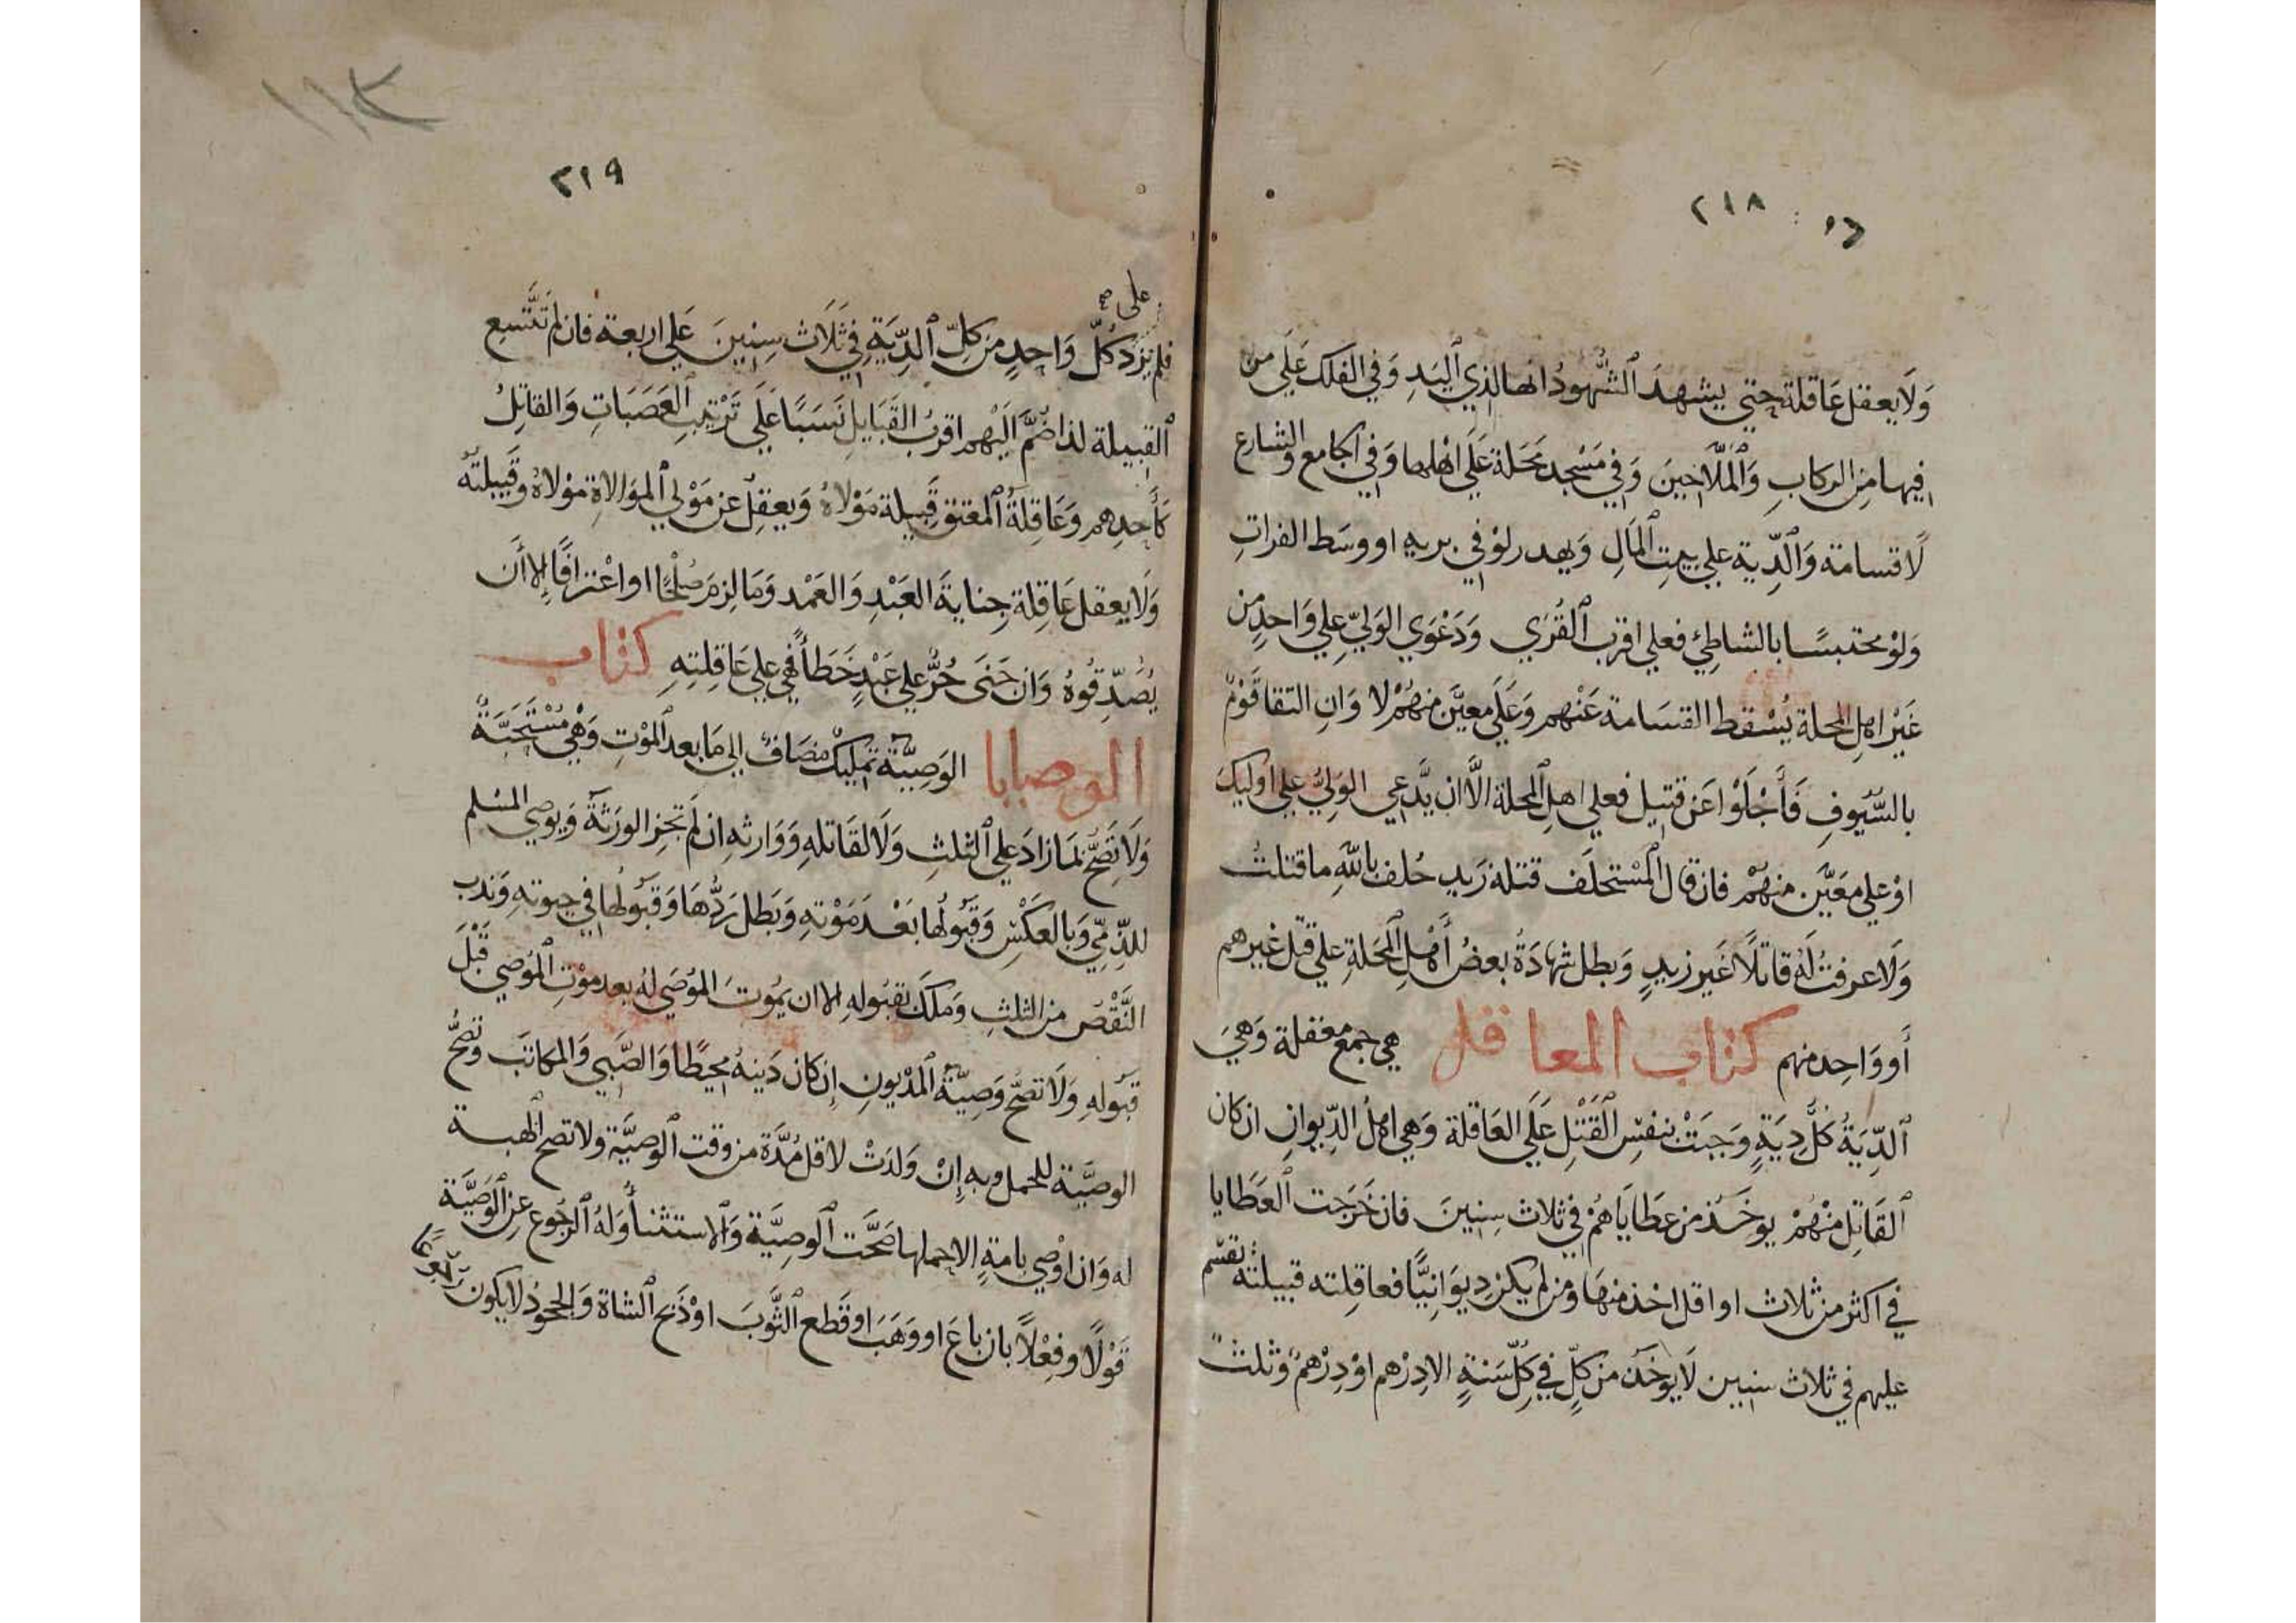 ٢١٨
ولا يعقل عاقلة حتى يشهد الشهود انها لذي اليد وفي الفلك على من
فيها من الركاب والملاحين وفي مسجد محلة على اهلها وفي الجامع والشارع
لا قسامة والدية على بيت المال ويهدر لو في برية او وسط الفرات
ولو محتبسا بالشاطئ فعلى اقرب القرى ودعوى الولي على واحد من
غير اهل المحلة يسقط القسامة عنهم وعلى معين منهم لا وان التقا قوم
بالسيوف فأجلوا عن قتيل فعلى اهل المحلة الا ان يدعي الولي على اوليك
او على معين منهم فان قال المستحلف قتله زيد حلف بالله ما قتلت
ولا عرفت له قاتلا غير زيد وبطل شهادة بعض أهل المحلة على قتل غيرهم
أو واحد منهم كتاب المعاقل هي جمع معقلة وهي
الدية كل دية وجبت بنفس القتل على العاقلة وهي اهل الديوان ان كان
القاتل منهم يوخذ من عطاياهم في ثلاث سنين فان خرجت العطايا
في اكثر من ثلاث او اقل اخذ منها ومن لم يكن ديوانيا فعاقلته قبيلته تقسم
عليهم في ثلاث سنين لا يوخذ من كل في كل سنة الا درهم او درهم وثلث
١١٣
٢١٩
على صح
فلم يزد كل واحد من كل الدية في ثلاث سنين على اربعة فان لم تتسع
القبيلة لذا ضم اليهم اقرب القبايل نسبا على ترتيب العصبات والقاتل
كأحدهم وعاقلة المعتق قبيلة مولاه ويعقل عن مولى الموالاة مولاه وقبيلته
ولا يعقل عاقلة جناية العبد والعمد وما لزم صلحا او اعترافا إلا أن
يصدقوه وان جنى حر على عبد خطأ فهي على عاقلته كتاب
الوصايا الوصية تمليك مضاف الى ما بعد الموت وهي مستحبة
ولا تصح بما زاد على الثلث ولا لقاتله ووارثه ان لم تجز الورثة ويوصي المسلم
للذمي وبالعكس وقبولها بعد موته وبطل ردها وقبولها في حيوته وندب
النقص من الثلث وملك بقبوله الا ان يموت الموصى له بعد موت الموصي قبل
قبوله ولا تصح وصية المديون إن كان دينه محيطا والصبي والمكاتب وتصح
الوصية للحمل وبه إن ولدت لاقل مدة من وقت الوصية ولا تصح الهبة
له وان اوصى بامة الا حملها صحت الوصية والاستثنأ وله الرجوع عن الوصية
قولا وفعلا بان باع او وهب او قطع الثوب او ذبح الشاة والجحود لا يكون
رجوعا